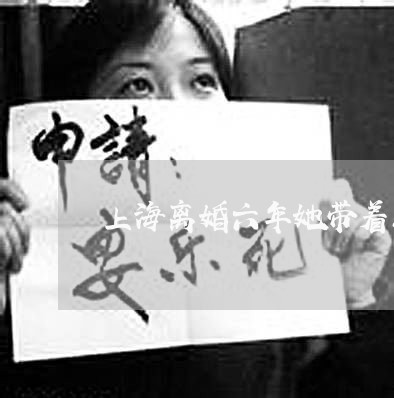 申請：
上海离婚六年她带着
安乐死